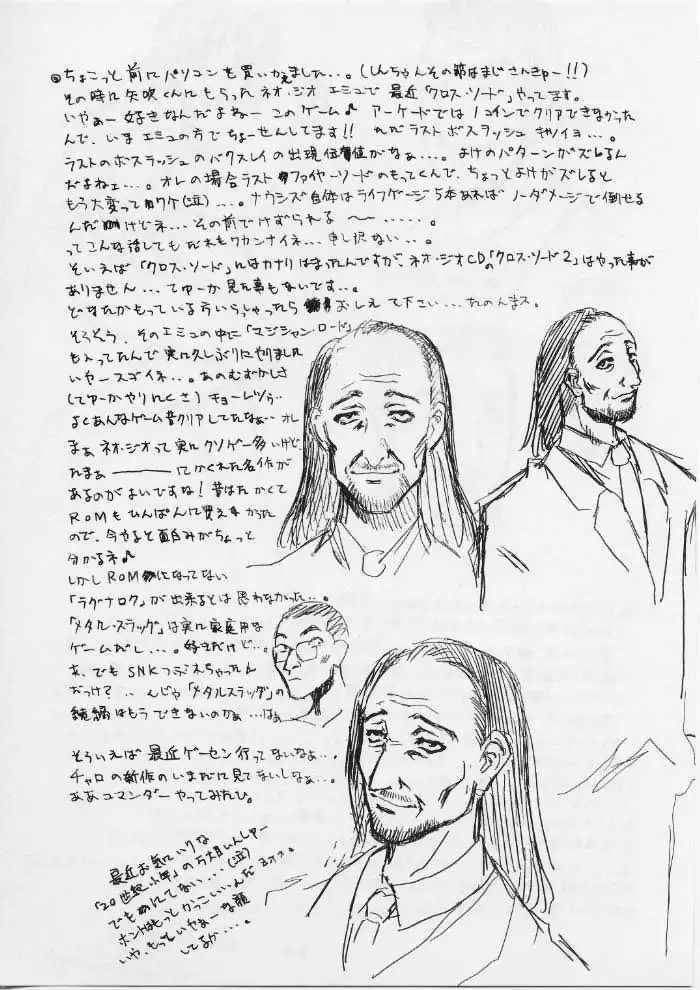 ◎ちょこっと前にパソコンを買いかえました…。(しんちゃんその節はまじさんきゅー!!)
その時に矢吹くんにもらったネオ・ジオエミュで最近「クロス・ソード」やってます。
いやぁー好きなんだよねーこのゲーム♪ アーケードでは1コインでクリアできなかった
んで、いまエミュの方でちょーせんしてます!! ただラストボスラッシュキツイヨ…。
ラストのボスラッシュのバクスレイの出現位置がなぁ…。よけのパターンがズレるん
だよねェ…。オレの場合ラストファイヤーソードのもってくんで、ちょっとよけがズレると
もう大変ってワケ(泣)…。ナウシズ自体はライフゲージ5本あればノーダメージで倒せる
んだけどネ…その前でけずられる〜……。
ってこんな話してもだれもワカンナイネ…申し訳ない…。
そいえば「クロス・ソード」にはカナリはまったんですが、ネオ・ジオCDの「クロス・ソード2」はやった事が
ありません…てゆーか見た事もないです…。
どなたかもっている方いらっしゃったらおしえて下さい…たのんます。
そうそう、そのエミュの中に「マジシャン・ロード」
も入ってたんで実に久しぶりにやりました
いやースゴイネ…。あのむずかしさ
(てゆーかやりにくさ)キョーレツぅ…
よくあんなゲーム昔クリアしてたなぁ…オレ
まぁネオ・ジオって実にクソゲー多いけど
たまぁ――にかくれた名作が
あるのがよいですね!昔はたかくて
ROMもひんぱんに買えなかった
ので、今やると面白みがちょっと
分かるネ♪
しかしROMになってない
「ラグナロク」が出来るとは思わなかった…。
「メタル・スラッグ」は実に家庭用な
ゲームだし…。好きだけど…。
あ、でもSNKつぶれちゃったん
だっけ?…んじゃ「メタルスラッグ」の
続編はもうできないのかぁ…はぁ
そういえば最近ゲーセン行ってないなぁ…。
チャロの新作のいまだに見てないしなぁ…。
ああコマンダーやってみたひ。
最近お気にいりな
「20世紀少年」の万丈目いんしゅー
でもにてない…(泣)
ホントはもっとかっこいいんだョォォ。
いや、もっといやぁーな顔
してるか…。